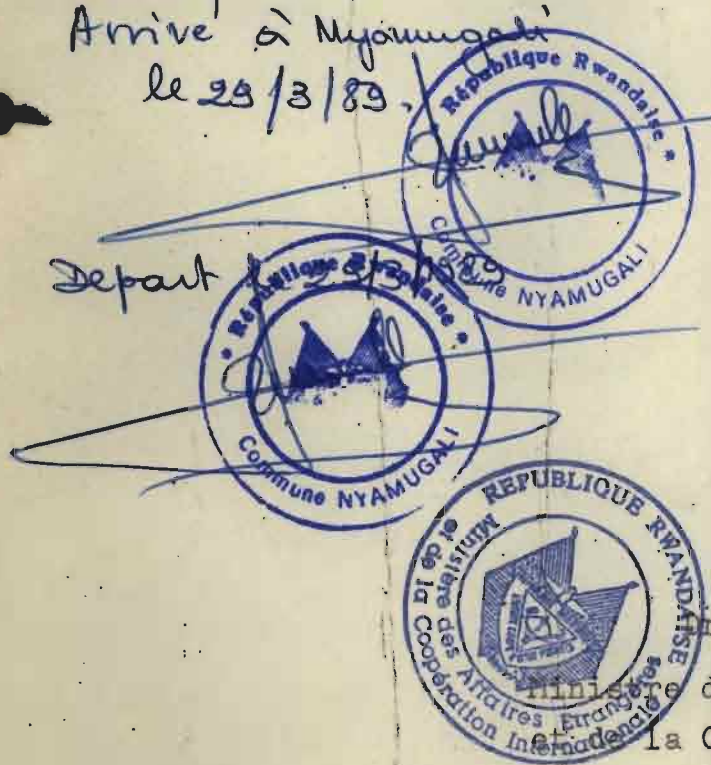 Arrivé à Nyamugali
le 29/3/89.
* République Rwandaise *
Commune NYAMUGALI
Depart
* République Rwandaise *
Commune NYAMUGALI
REPUBLIQUE RWANDAISE
Ministère des Affaires Etrangères
et de la Coopération Internationale
Ministre d
et de la C